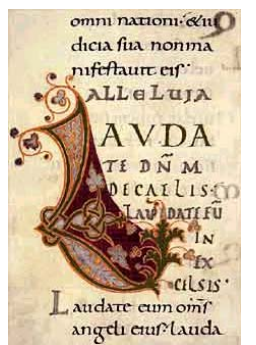 omni nationi· &iu
dicia sua nonma
nifestauit eis·
ALLELUJA
LAVDA
TE DÑM
DECAELIS·
LAUDATE EŪ
IN
EX
CELSIS·
Laudate eum om̄s
angeli eius lauda